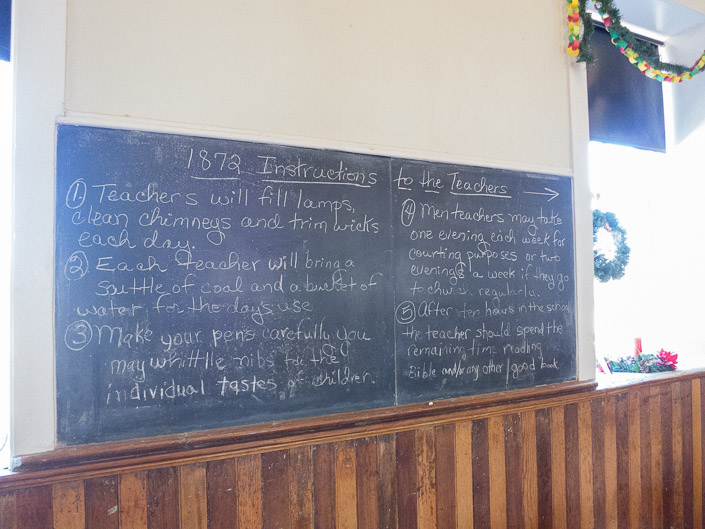 1872 Instructions to the Teachers →
① Teachers will fill lamps,
clean chimneys and trim wicks
each day.
② Each teacher will bring a
scuttle of coal and a bucket of
water for the days use
③ Make your pens carefully you
may whittle nibs for the
individual tastes of children.
④ Men teachers may take
one evening each week for
courting purposes or two
evenings a week if they go
to church regularly.
⑤ After ten hours in the school
the teacher should spend the
remaining time reading
Bible and/or any other good book